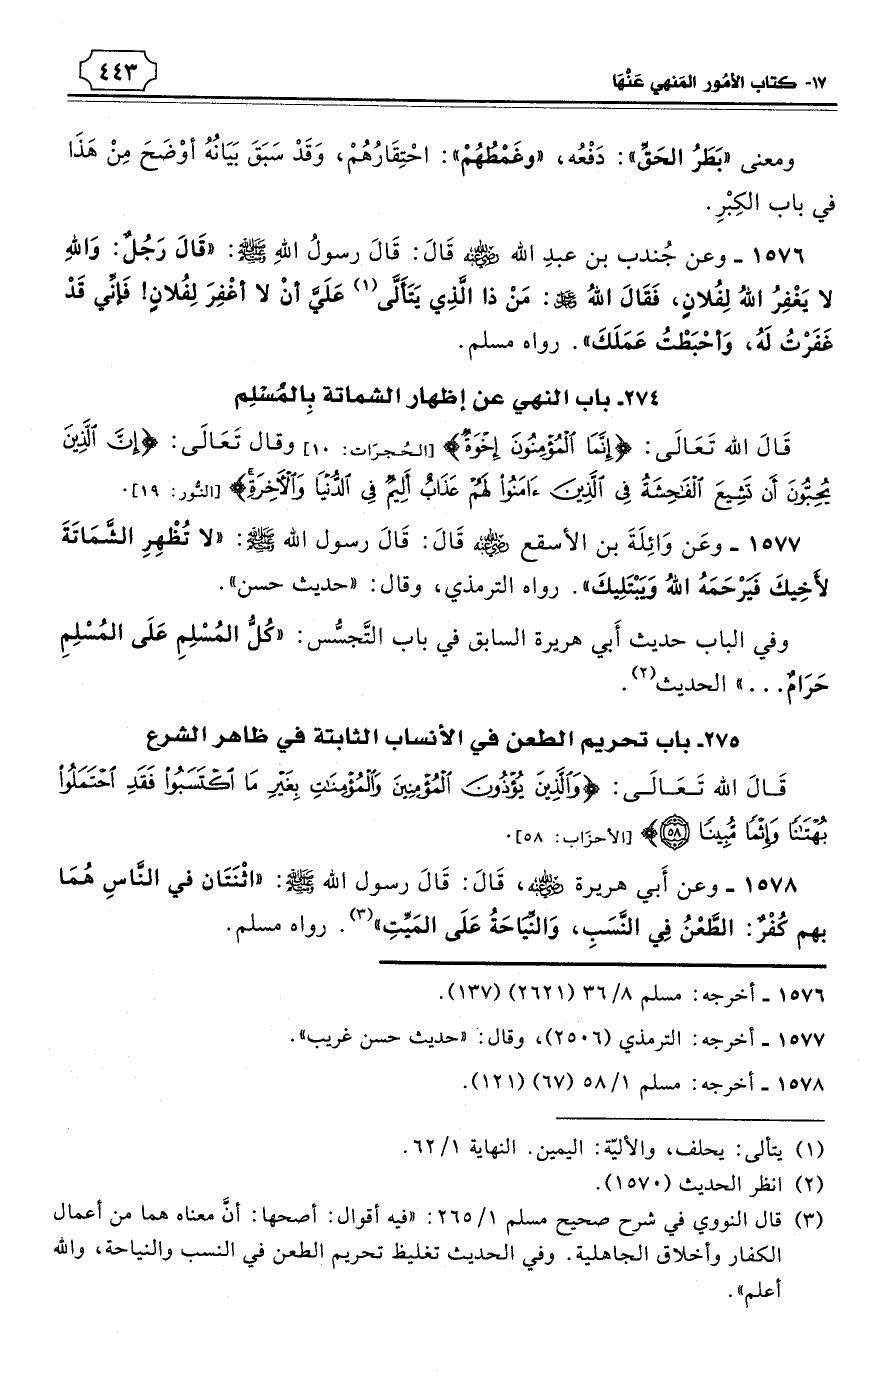 ١٧- كتاب الأمُور المَنهي عَنْهَا
٤٤٣
ومعنى «بَطَرُ الحَقِّ»: دَفْعُه، «وغَمْطُهُمْ»: احْتِقَارُهُمْ، وَقَدْ سَبَقَ بَيَانُهُ أوْضَحَ مِنْ هَذَا
في باب الكِبْرِ.
١٥٧٦ ـ وعن جُندب بن عبدِ الله رضي الله عنه قَالَ: قَالَ رسولُ اللهِ ﷺ: «قَالَ رَجُلٌ: وَاللهِ
لا يَغْفِرُ اللهُ لِفُلانٍ، فَقَالَ اللهُ ﷻ: مَنْ ذا الَّذِي يَتَألَّى(١) عَلَيَّ أنْ لا أغْفِرَ لِفُلانٍ! فَإنِّي قَدْ
غَفَرْتُ لَهُ، وَأحْبَطْتُ عَمَلَكَ». رواه مسلم.
٢٧٤ـ باب النهي عن إظهار الشماتة بِالمُسْلِم
قَالَ الله تَعَالَى: ﴿إِنَّمَا الْمُؤْمِنُونَ إِخْوَةٌ﴾ [الحُجرَات: ١٠] وقال تَعَالَى: ﴿إِنَّ الَّذِينَ
يُحِبُّونَ أَن تَشِيعَ الْفَاحِشَةُ فِي الَّذِينَ ءَامَنُوا لَهُمْ عَذَابٌ أَلِيمٌ فِي الدُّنْيَا وَالْآخِرَةِ﴾ [النُّور: ١٩].
١٥٧٧ ـ وعَن وَاثِلَةَ بن الأسقع رضي الله عنه قَالَ: قَالَ رسول الله ﷺ: «لا تُظْهِرِ الشَّمَاتَةَ
لأَخِيكَ فَيَرْحَمَهُ اللهُ وَيَبْتَلِيكَ». رواه الترمذي، وقال: «حديث حسن».
وفي الباب حديث أَبي هريرة السابق في باب التَّجسُّس: «كُلُّ المُسْلِمِ عَلَى المُسْلِمِ
حَرَامٌ...» الحديث(٢).
٢٧٥ـ باب تحريم الطعن في الأنساب الثابتة في ظاهر الشرع
قَالَ الله تَعَالَى: ﴿وَالَّذِينَ يُؤْذُونَ الْمُؤْمِنِينَ وَالْمُؤْمِنَاتِ بِغَيْرِ مَا اكْتَسَبُوا فَقَدِ احْتَمَلُوا
بُهْتَانًا وَإِثْمًا مُّبِينًا ٥٨﴾ [الأحزَاب: ٥٨].
١٥٧٨ ـ وعن أَبي هريرة رضي الله عنه، قَالَ: قَالَ رسول الله ﷺ: «اثْنَتَان في النَّاسِ هُمَا
بهم كُفْرٌ: الطَّعْنُ فِي النَّسَبِ، وَالنِّيَاحَةُ عَلَى المَيِّتِ»(٣). رواه مسلم.
١٥٧٦ ـ أخرجه: مسلم ٣٦/٨ (٢٦٢١) (١٣٧).
١٥٧٧ ـ أخرجه: الترمذي (٢٥٠٦)، وقال: «حديث حسن غريب».
١٥٧٨ ـ أخرجه: مسلم ٥٨/١ (٦٧) (١٢١).
(١) يتألى: يحلف، والأليّة: اليمين. النهاية ٦٢/١.
(٢) انظر الحديث (١٥٧٠).
(٣) قال النووي في شرح صحيح مسلم ٢٦٥/١: «فيه أقوال: أصحها: أنَّ معناه هما من أعمال
الكفار وأخلاق الجاهلية. وفي الحديث تغليظ تحريم الطعن في النسب والنياحة، والله
أعلم».